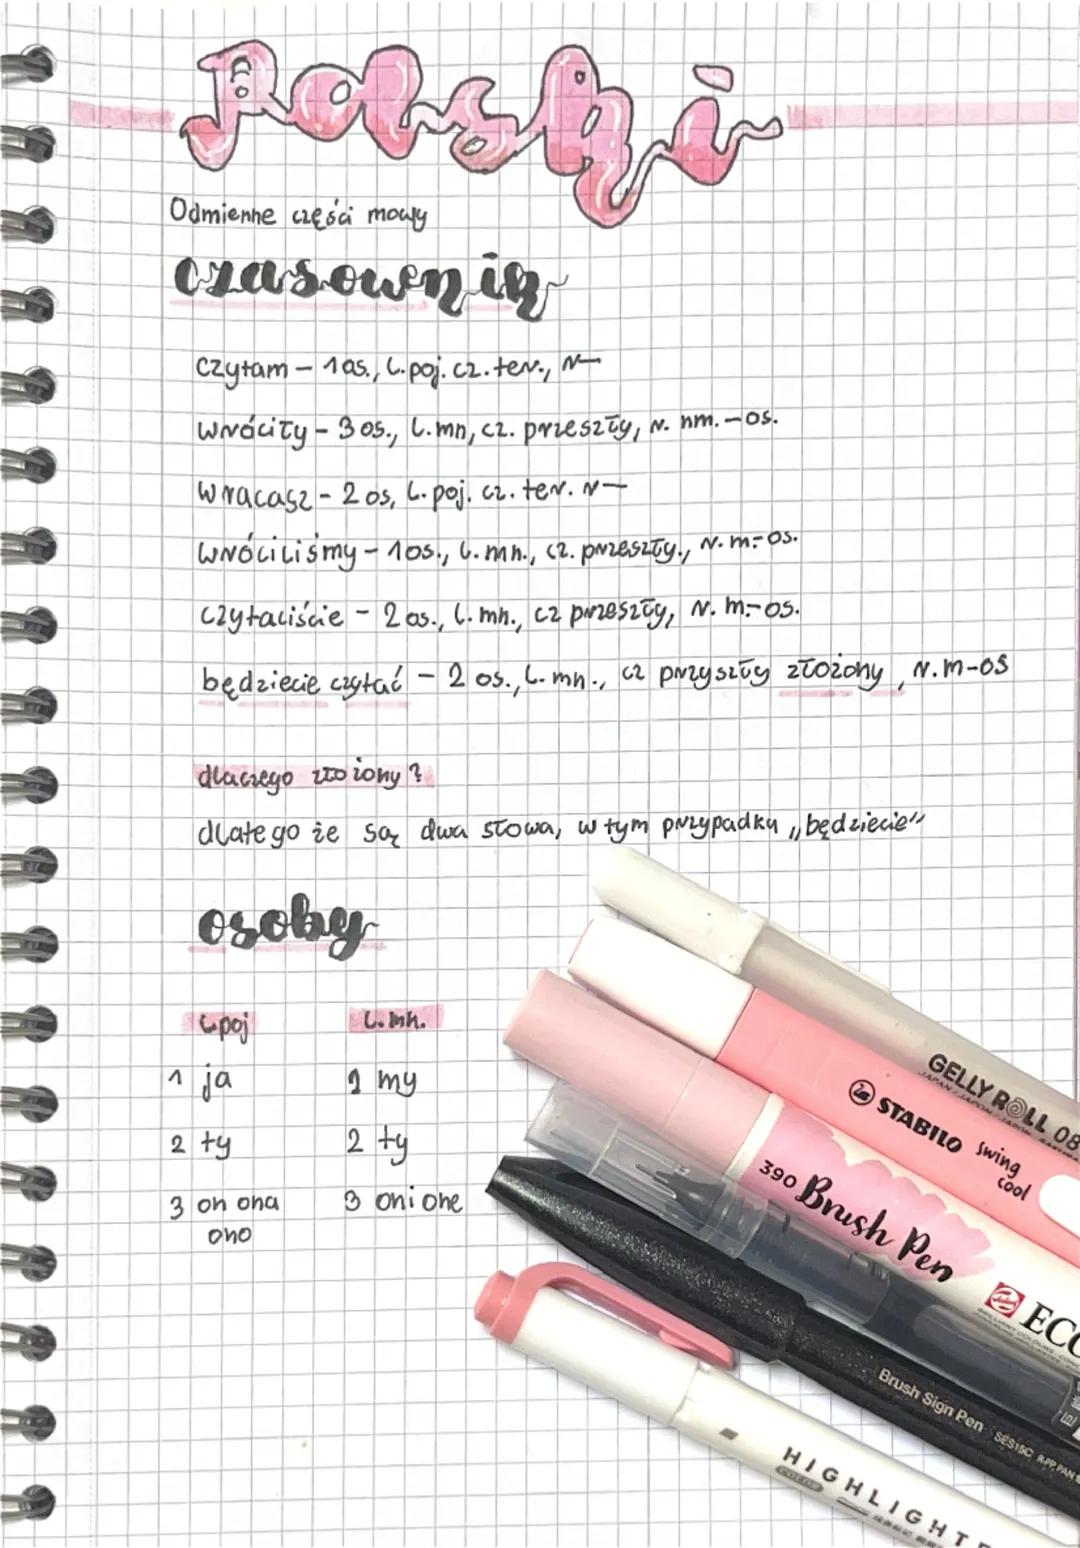 Polski
Odmienne części mowy
czasownik
czytam – 1os., l.poj. cz. ter., r—
wróciły – 3os., l.mn, cz. przeszły, r. nm.-os.
wracasz – 2os, l.poj. cz. ter. r—
wróciliśmy – 1os., l.mn., cz. przeszły., r.m.-os.
czytaliście – 2os., l.mn., cz przeszły, r. m.-os.
będziecie czytać – 2 os., l.mn., cz przyszły złożony, r.m-os
dlaczego złożony?
dlatego że są dwa słowa, w tym przypadku „będziecie”
osoby
l.poj l.mn.
1 ja 1 my
2 ty 2 ty
3 on ona 3 oni one
ono
GELLY ROLL 08
STABILO swing
cool
390 Brush Pen
ECO
Brush Sign Pen SES15C
HIGHLIGHTE
COLOR